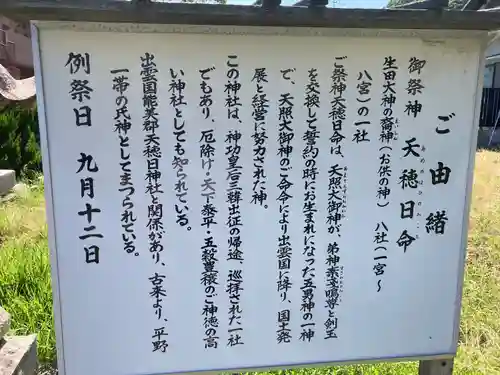 ご由緒
御祭神 天穂日命
生田大神の裔神(お供の神) 八社(一宮〜
八宮)の一社
ご祭神天穂日命は、天照大御神が、弟神素戔嗚尊と剣玉
を交換して誓約の時にお生まれになった五男神の一神
で、天照大御神のご命令により出雲国に降り、国土発
展と経営に努力された神。
この神社は、神功皇后三韓出征の帰途、巡拝された一社
でもあり、厄除け・天下泰平・五穀豊穣のご神徳の高
い神社としても知られている。
出雲国能美郡天穂日神社と関係があり、古来より、平野
一帯の氏神としてまつられている。
例祭日 九月十二日